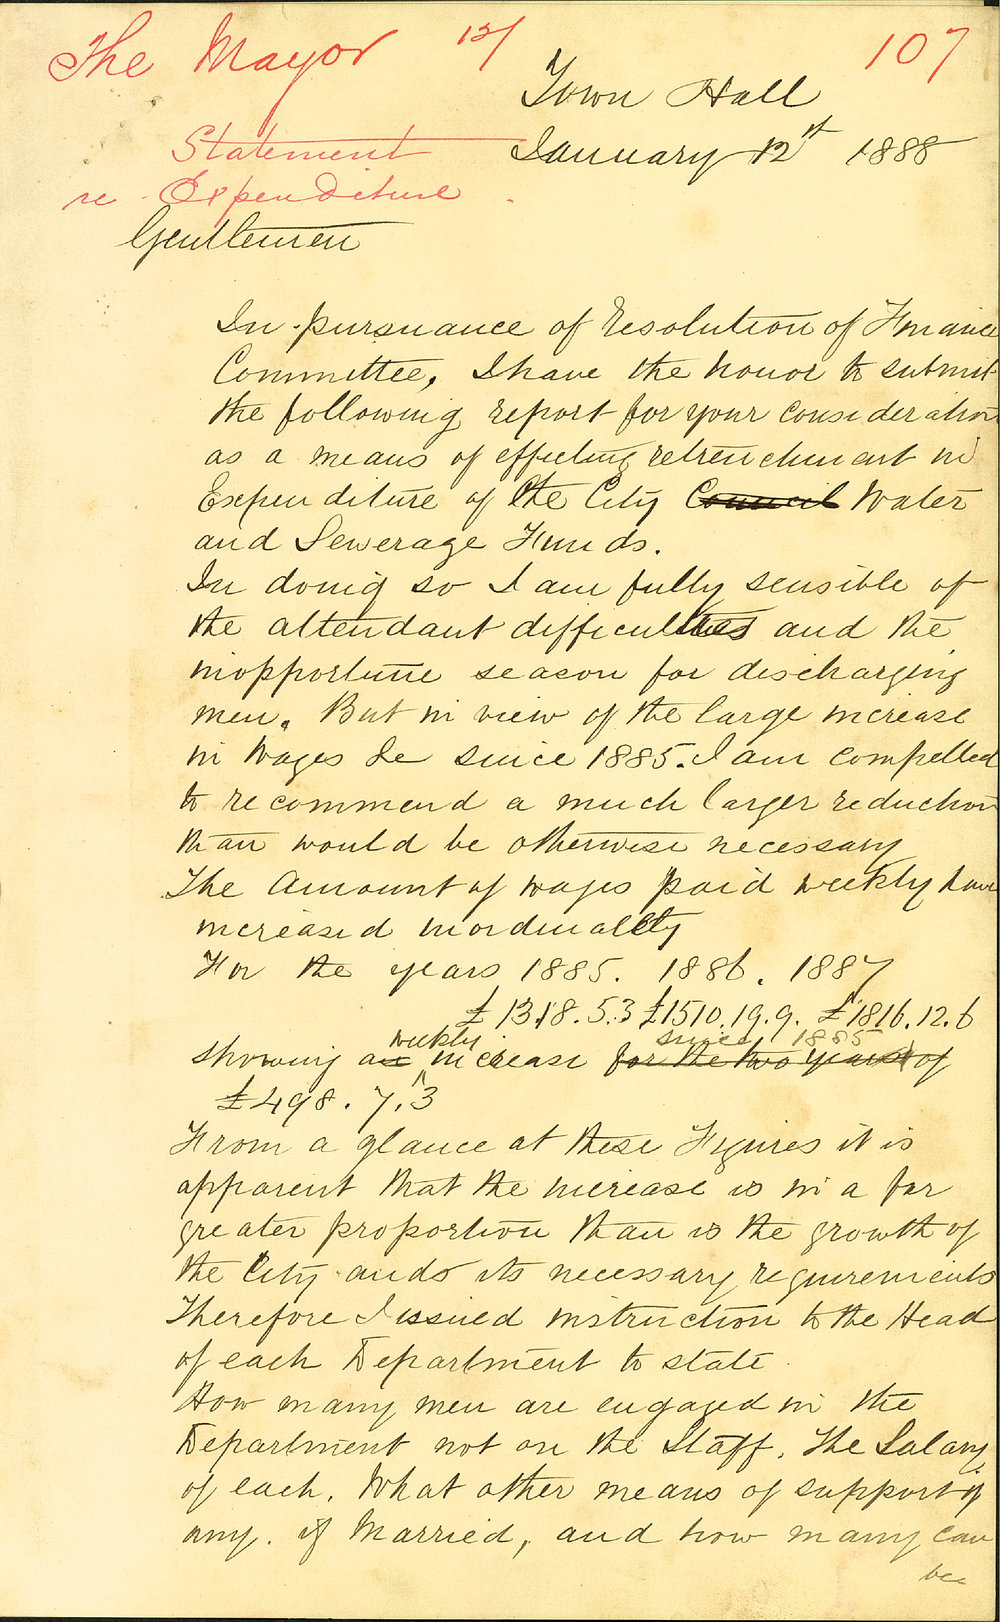 The Mayor 12/ 107
Town Hall
Statement January 12st 1888
re Expenditure.
Gentlemen
In pursuance of resolution of Finance
Committee, I have the honor to submit
the following report for your consideration
as a means of effecting retrenchment in
Expenditure of the City Council Water
and Sewerage Funds.
In doing so I am fully sensible of
the attendant difficulties and the
inopportune season for discharging
men. But in view of the large increase
in Wages &c since 1885. I am compelled
to recommend a much larger reduction
than would be otherwise necessary
The Amount of wages paid weekly have
increased inordinately
For the years 1885. 1886. 1887
£1318.5.3 £1510.19.9. £1816.12.6
weekly since 1885
showing an increase for the two years of
£498.7.3
From a glance at these Figures it is
apparent that the increase is in a far
greater proportion than is the growth of
the City and its necessary requirements
Therefore I issued instruction to the Head
of each Department to state
How many men are engaged in the
Department not on the Staff. The Salary
of each. What other means of support if
any. if Married, and how many can
be